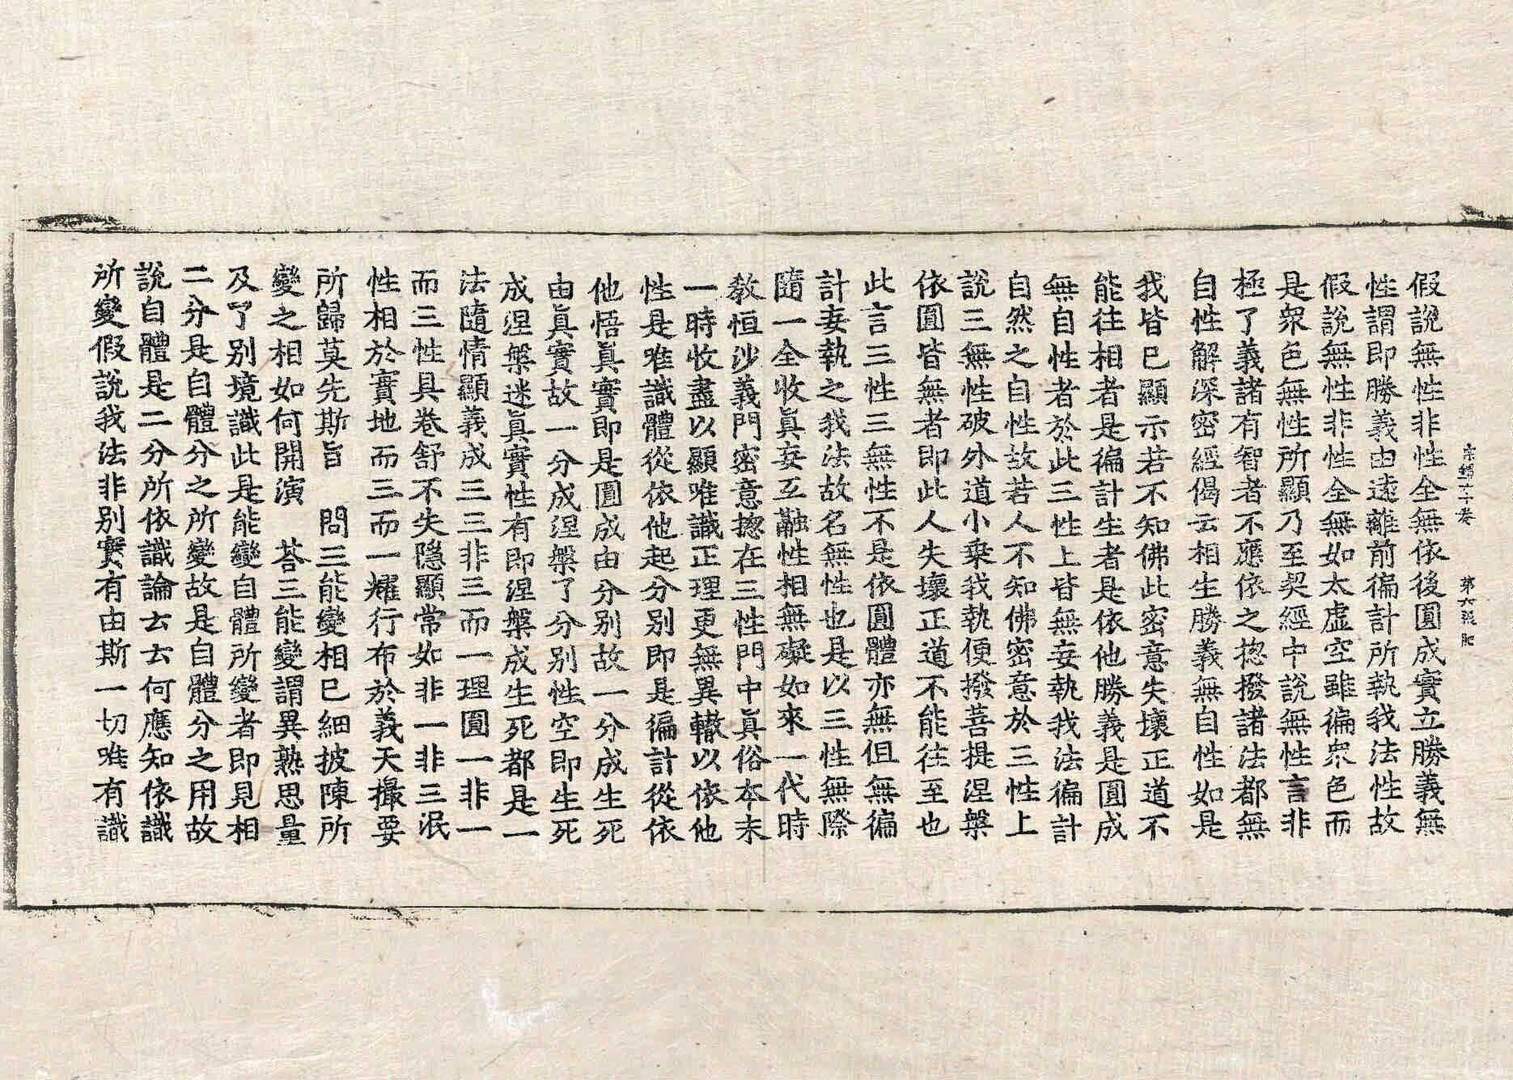 宗鏡六十卷 第六張 肥
假說無性非性全無依後圓成實立勝義無
性謂即勝義由遠離前徧計所執我法性故
假說無性非性全無如太虛空雖徧衆色而
是衆色無性所顯乃至契經中說無性言非
極了義諸有智者不應依之揔撥諸法都無
自性解深密經偈云相生勝義無自性如是
我皆已顯示若不知佛此密意失壞正道不
能往相者是徧計生者是依他勝義是圓成
無自性者於此三性上皆無妄執我法徧計
自然之自性故若人不知佛密意於三性上
說三無性破外道小乗我執便撥菩提涅槃
依圓皆無者即此人失壞正道不能往至也
此言三性三無性不是依圓體亦無但無徧
計妄執之我法故名無性也是以三性無際
隨一全收眞妄互融性相無礙如來一代時
教恒沙義門密意揔在三性門中眞俗本末
一時收盡以顯唯識正理更無異轍以依他
性是唯識體從依他起分別即是徧計從依
他悟眞實即是圓成由分別故一分成生死
由眞實故一分成涅槃了分別性空即生死
成涅槃迷眞實性有即涅槃成生死都是一
法隨情顯義成三三非三而一理圓一非一
而三性具卷舒不失隱顯常如非一非三泯
性相於實地而三而一耀行布於義天撮要
所歸莫先斯旨 問三能變相已細披陳所
變之相如何開演 荅三能變謂異熟思量
及了別境識此是能變自體所變者即見相
二分是自體分之所變故是自體分之用故
說自體是二分所依識論云云何應知依識
所變假說我法非別實有由斯一切唯有識